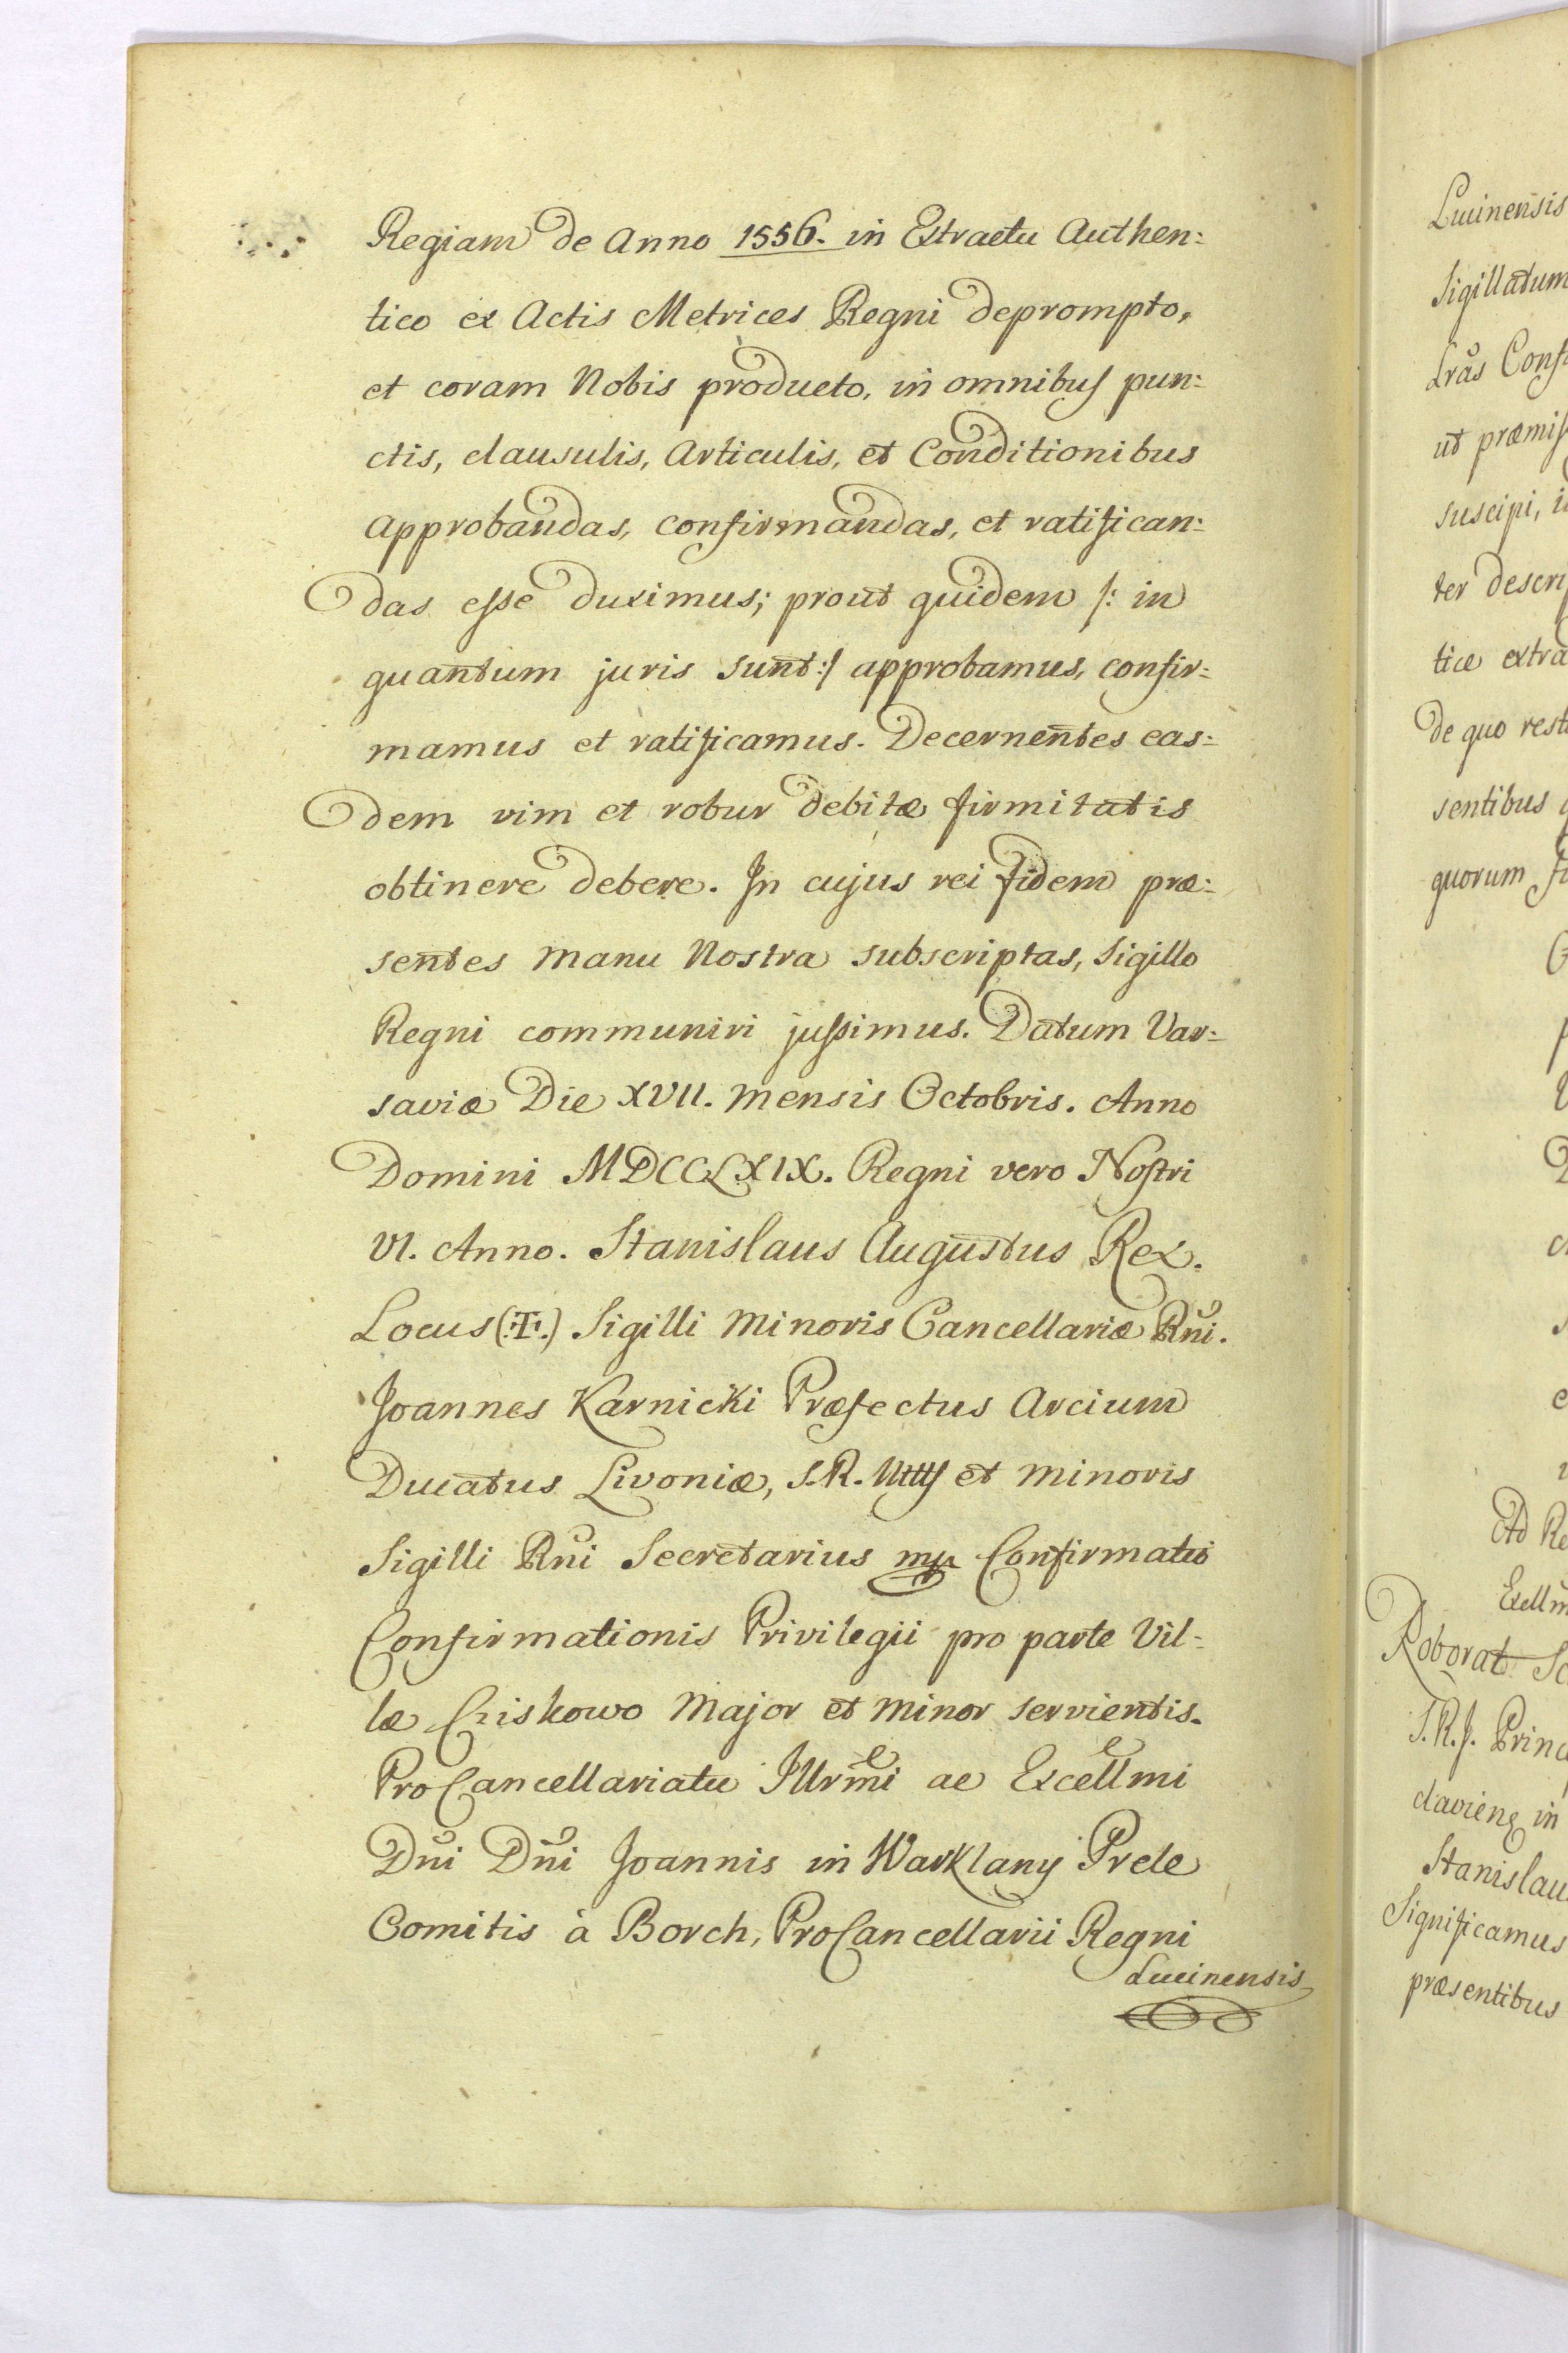 Regiam de Anno 1556. in Extractu Authen:
tico ex Actis Metrices Regni deprompto,
et coram Nobis producto, in omnibus pun:
ctis, clausulis, Articulis, et Conditionibus
approbandas, confirmandas, et ratifican:
das esse duximus; prout quidem /: in
quantum juris sunt :/ approbamus, confir:
mamus et ratificamus. Decernentes eas:
dem vim et robur debitæ firmitatis
obtinere debere. In cujus rei fidem præ:
sentes manu Nostra subscriptas, Sigillo
Regni communiri jussimus. Datum Var:
saviæ Die XVII. mensis Octobris. Anno
Domini MDCCLXIX. Regni vero Nostri
VI. Anno. Stanislaus Augustus Rex.
Locus (.T.) Sigilli Minoris Cancellariæ Rni.
Joannes Karnicki Præfectus Arcium
Ducatus Livoniæ, S. R. et Minoris
Sigilli Rni Secretarius mp Confirmatio
Confirmationis Privilegii pro parte Vil:
læ Criskowo Major et Minor servientis.
ProCancellariatu Illrmi ac Excellmi
Dni Dni Joannis in Warklany Prele
Comitis à Borch, ProCancellarii Regni
Lucinensis
Lucinensis
Sigillatum
ut
suscipi,
ter
tice
de quo
sentibus
quorum
Roborat
S. R. J.
in
Significamus
præsentibus